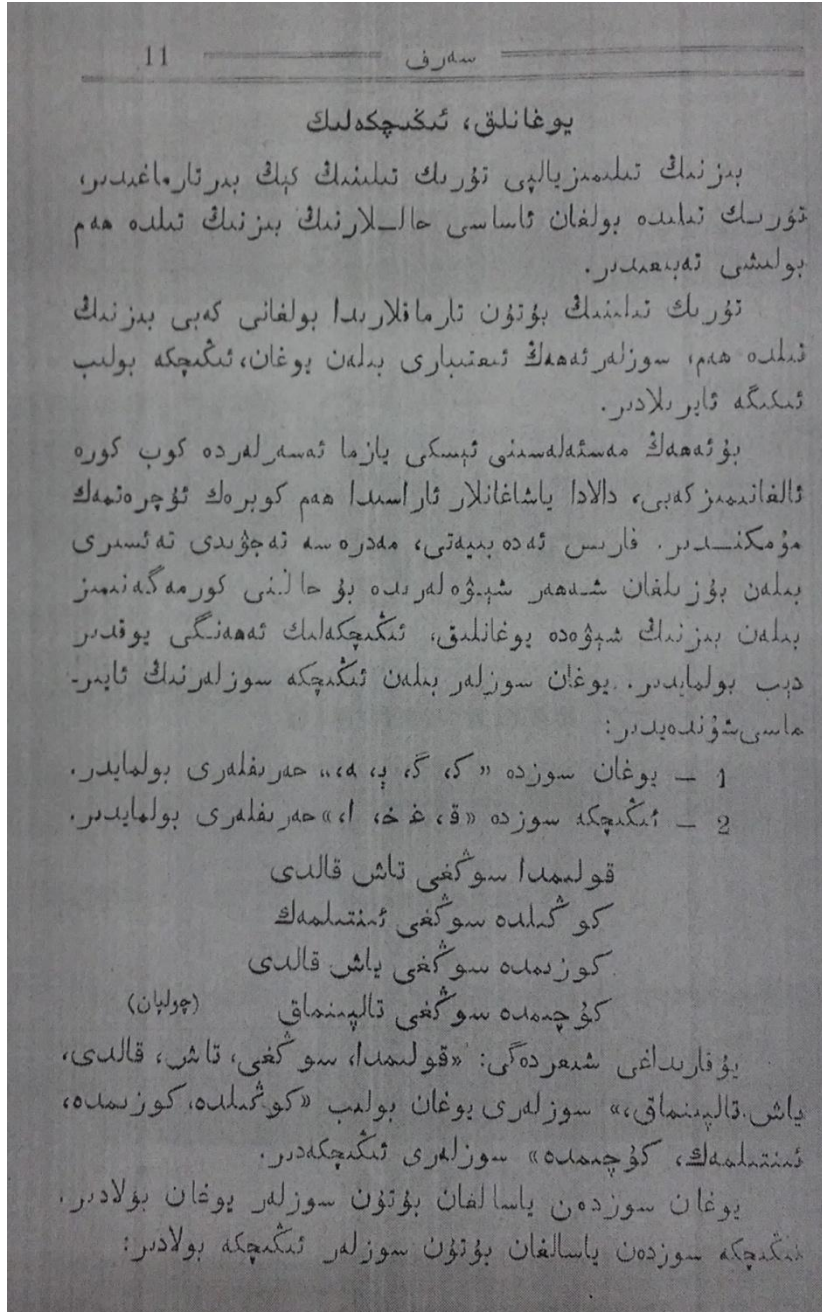 11 سەرف
يوغانلق، ئىڭىچكەلىك
بىزنىڭ تىلىمىزيالپى تۇرىك تىلىنىڭ كېڭ بىرتارماغىدىر،
تۇرىك تىلىدە بولغان ئاساسى حالـلارنىڭ بىزنىڭ تىلدە ھەم
بولىشى تەبىعىدىر.
تۇرىك تىلىنىڭ بۇتۇن تارماقلارىدا بولغانى كەبى بىزنىڭ
تىلدە ھەم، سوزلەرئەھەڭ ئىعتىبارى بىلەن يوغان،ئىڭىچكە بولىب
ئىكىگە ئايرىلادىر.
بۇئەھەڭ مەسئەلەسىنى ئېسكى يازما ئەسەرلەردە كوب كورە
ئالغانىمىزكەبى، دالادا ياشاغانلار ئاراسىدا ھەم كوبرەك ئۇچرەتمەك
مۇمكنـدىر. فارىس ئەدەبىيەتى، مەدرەسە تەجۋىدى تەئسىرى
بىلەن بۇزىلغان شەھەر شېۋەلەرىدە بۇ حالنى كورمەگەنىمىز
بىلەن بىزنىڭ شېۋەدە يوغانلىق، ئىڭىچكەلىك ئەھەنگى يوقدىر
دېب بولمايدىر. يوغان سوزلەر بىلەن ئىڭىچكە سوزلەرنىڭ ئايىرـ
ماسى‌شۇندەيدىر:
1 — يوغان سوزدە «ك، گ، ې، ە،» حەرىفلەرى بولمايدر.
2 — ئىڭىچكە سوزدە «ق، غ خ، ا،»حەرىفلەرى بولمايدىر.
قولىمدا سوڭغى تاش قالدى
كوڭىلدە سوڭغى ئىنتىلمەك
كوزىمدە سوڭغى ياش قالدى
كۇچىمدە سوڭغى تالپىنماق (چولپان)
يۇقارىداغى شىعردەگى: «قولىمدا، سوڭغى، تاش، قالدى،
ياش.تالپىنماق،» سوزلەرى يوغان بولىب «كوڭىلدە، كوزىمدە،
ئىنتىلمەك، كۇچىمدە» سوزلەرى ئىڭىچكەدىر.
يوغان سوزدەن ياسالغان بۇتۇن سوزلەر يوغان بۇلادىر.
ئىڭىچكە سوزدەن ياسالغان بۇتۇن سوزلەر ئىڭىچكە بولادىر: